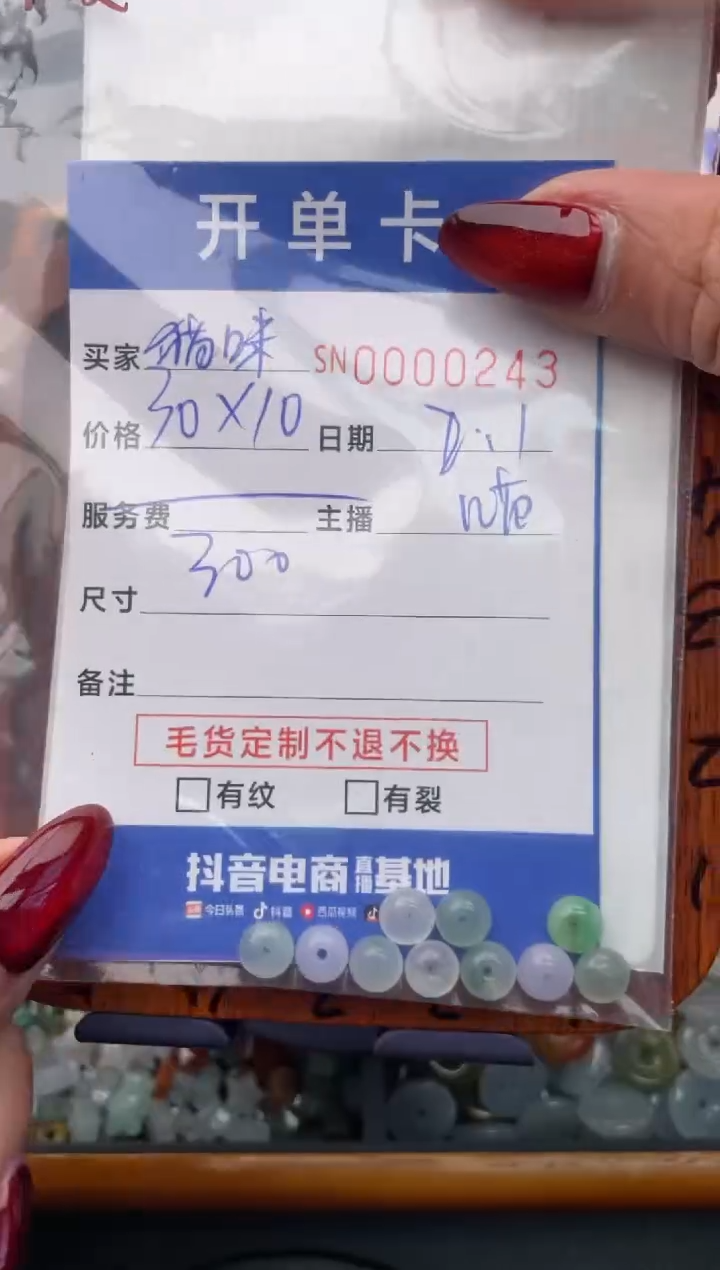 开单卡
买家 猫咪 SN0000243
价格 30X10 日期
服务费 主播
300
尺寸
备注
毛货定制不退不换
有纹 有裂
抖音电商直播基地
今日头条 抖音 西瓜视频